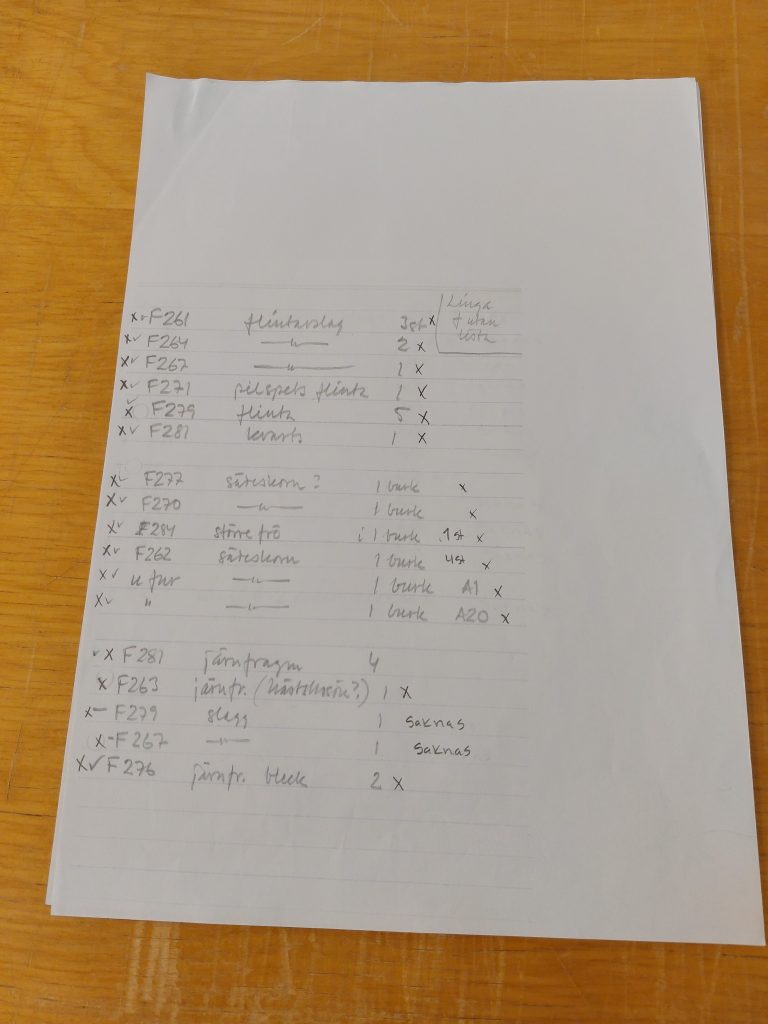 x✓ F261 flintavslag 3st x
x✓ F264 —"— 2 x
x✓ F267 —"— 1 x
x✓ F271 pilspets flinta 1 x
x✓ F279 flinta 5 x
x✓ F281 kvarts 1 x
Linga
f utan
lista
x✓ F277 sädeskorn? 1 burk x
x✓ F270 —"— 1 burk x
x✓ F284 större frö i 1 burk 1st x
x✓ F262 sädeskorn 1 burk 4st x
x✓ u fnr —"— 1 burk A1 x
x✓ " —"— 1 burk A20 x
✓x F281 järnfragm 4
x F263 järnfr. (hästskosöm?) 1 x
x– F279 slagg 1 saknas
x– F267 —"— 1 saknas
x✓ F276 järnfr. bleck 2 x